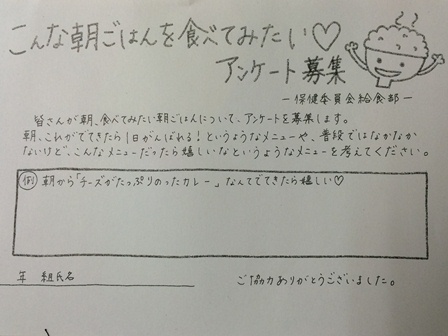 こんな朝ごはんを食べてみたい♡
アンケート募集
―保健委員会給食部―
皆さんが朝、食べてみたい朝ごはんについて、アンケートを募集します。
朝、これがでてきたら1日がんばれる!というようなメニューや、普段ではなかなか
ないけど、こんなメニューだったら嬉しいなというようなメニューを考えてください。
例 朝から「チーズがたっぷりのったカレー」なんてでてきたら嬉しい♡
年 組氏名
ご協力ありがとうございました。